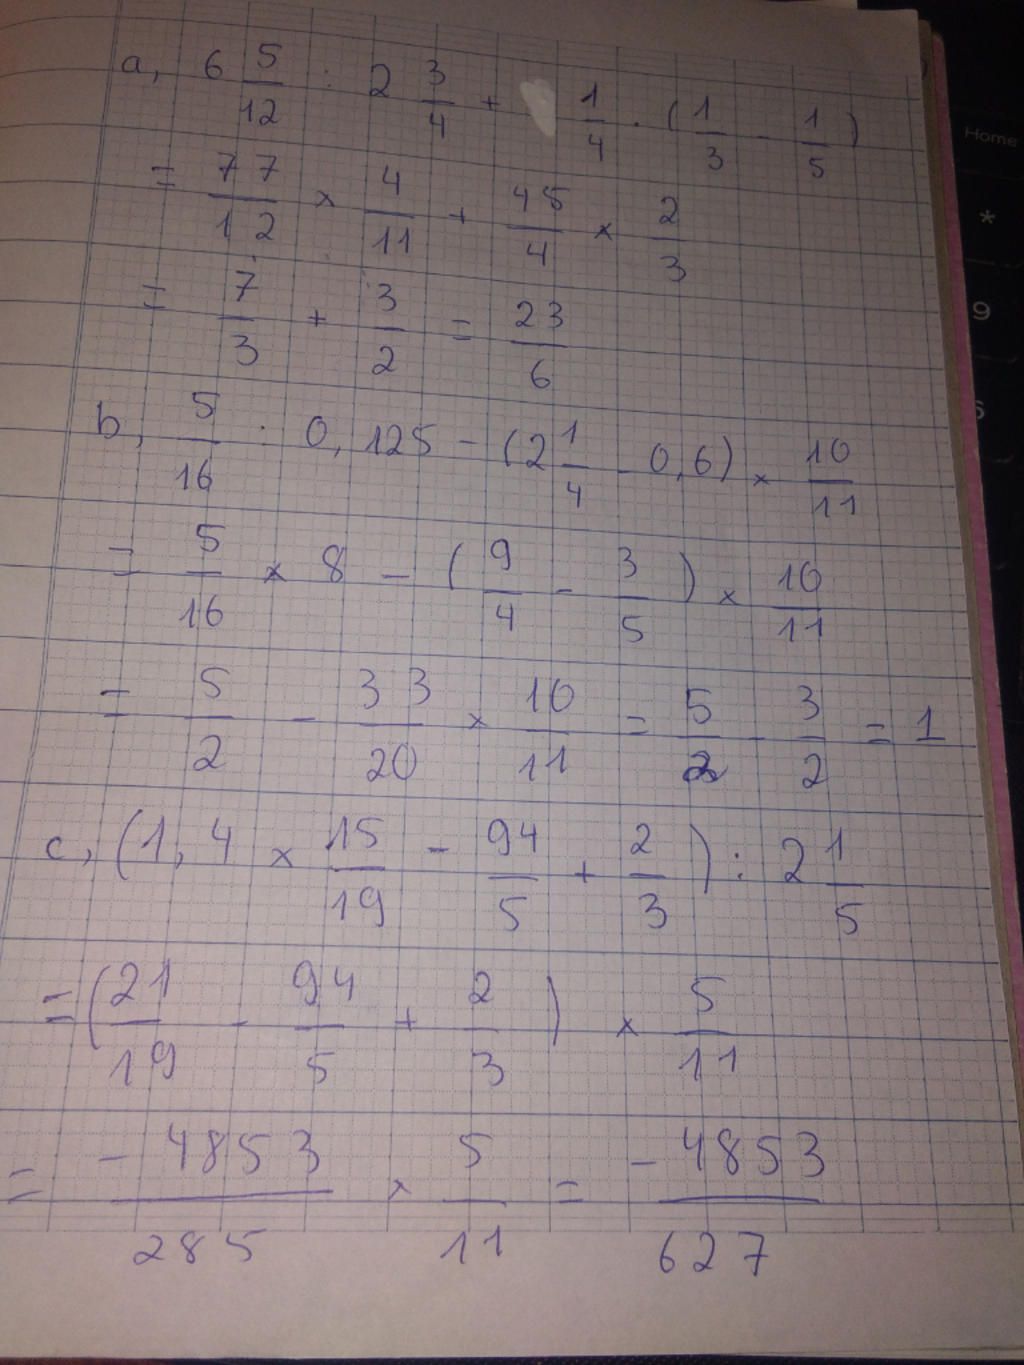 a, 6 5/12 : 2 3/4 + 1/4 . (1/3 - 1/5)
= 77/12 × 4/11 + 45/4 × 2/3
= 7/3 + 3/2 = 23/6
b, 5/16 : 0,125 - (2 1/4 - 0,6) × 10/11
= 5/16 × 8 - (9/4 - 3/5) × 10/11
= 5/2 - 33/20 × 10/11 = 5/2 - 3/2 = 1
c, (1,4 × 15/19 - 94/5 + 2/3) : 2 1/5
= (21/19 - 94/5 + 2/3) × 5/11
= -4853/285 × 5/11 = -4853/627
Home
*
9